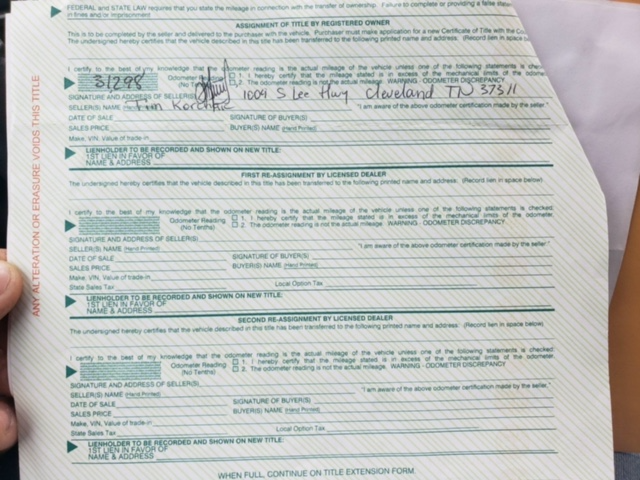 FEDERAL and STATE LAW requires that you state the mileage in connection with the transfer of ownership. Failure to complete or providing a false
in fines and/or imprisonment
ASSIGNMENT OF TITLE BY REGISTERED OWNER
This is to be completed by the seller and delivered to the purchaser with the vehicle. Purchaser must make application for a new Certificate of Title with the
The undersigned hereby certifies that the vehicle described in this title has been transferred to the following printed name and address: (Record lien in space
I certify to the best of my knowledge that the odometer reading is the actual mileage of the vehicle unless one of the following statements is
31298 Odometer 1. I hereby certify that the mileage stated is in excess of the mechanical limits of the
(No 2. The odometer reading is not the actual mileage. WARNING - ODOMETER DISCREPANCY
SIGNATURE AND ADDRESS OF SELLER(S) 1009 S Lee Hwy Cleveland TN 37311
SELLER(S) NAME Tim "I am aware of the above odometer certification made by the seller."
DATE OF SALE SIGNATURE OF BUYER(S)
SALES PRICE BUYER(S) NAME (Hand Printed)
Make, VIN, Value of trade-in
LIENHOLDER TO BE RECORDED AND SHOWN ON NEW TITLE:
1ST LIEN IN FAVOR OF
NAME & ADDRESS
FIRST RE-ASSIGNMENT BY LICENSED DEALER
The undersigned hereby certifies that the vehicle described in this title has been transferred to the following printed name and address: (Record lien in space below)
I certify to the best of my knowledge that the odometer reading is the actual mileage of the vehicle unless one of the following statements is checked.
Odometer Reading 1. I hereby certify that the mileage stated is in excess of the mechanical limits of the odometer.
(No Tenths) 2. The odometer reading is not the actual mileage. WARNING - ODOMETER DISCREPANCY
SIGNATURE AND ADDRESS OF SELLER(S)
SELLER(S) NAME (Hand Printed) "I am aware of the above odometer certification made by the seller."
DATE OF SALE SIGNATURE OF BUYER(S)
SALES PRICE BUYER(S) NAME (Hand Printed)
Make, VIN, Value of trade-in
State Sales Tax Local Option Tax
LIENHOLDER TO BE RECORDED AND SHOWN ON NEW TITLE:
1ST LIEN IN FAVOR OF
NAME & ADDRESS
SECOND RE-ASSIGNMENT BY LICENSED DEALER
The undersigned hereby certifies that the vehicle described in this title has been transferred to the following printed name and address: (Record lien in space below)
I certify to the best of my knowledge that the odometer reading is the actual mileage of the vehicle unless one of the following statements is checked.
Odometer Reading 1. I hereby certify that the mileage stated is in excess of the mechanical limits of the odometer.
(No Tenths) 2. The odometer reading is not the actual mileage. WARNING - ODOMETER DISCREPANCY
SIGNATURE AND ADDRESS OF SELLER(S)
SELLER(S) NAME (Hand Printed) "I am aware of the above odometer certification made by the seller."
DATE OF SALE SIGNATURE OF BUYER(S)
SALES PRICE BUYER(S) NAME (Hand Printed)
Make, VIN, Value of trade-in
State Sales Tax Local Option Tax
LIENHOLDER TO BE RECORDED AND SHOWN ON NEW TITLE:
1ST LIEN IN FAVOR OF
NAME & ADDRESS
WHEN FULL, CONTINUE ON TITLE EXTENSION FORM.
ANY ALTERATION OR ERASURE VOIDS THIS TITLE